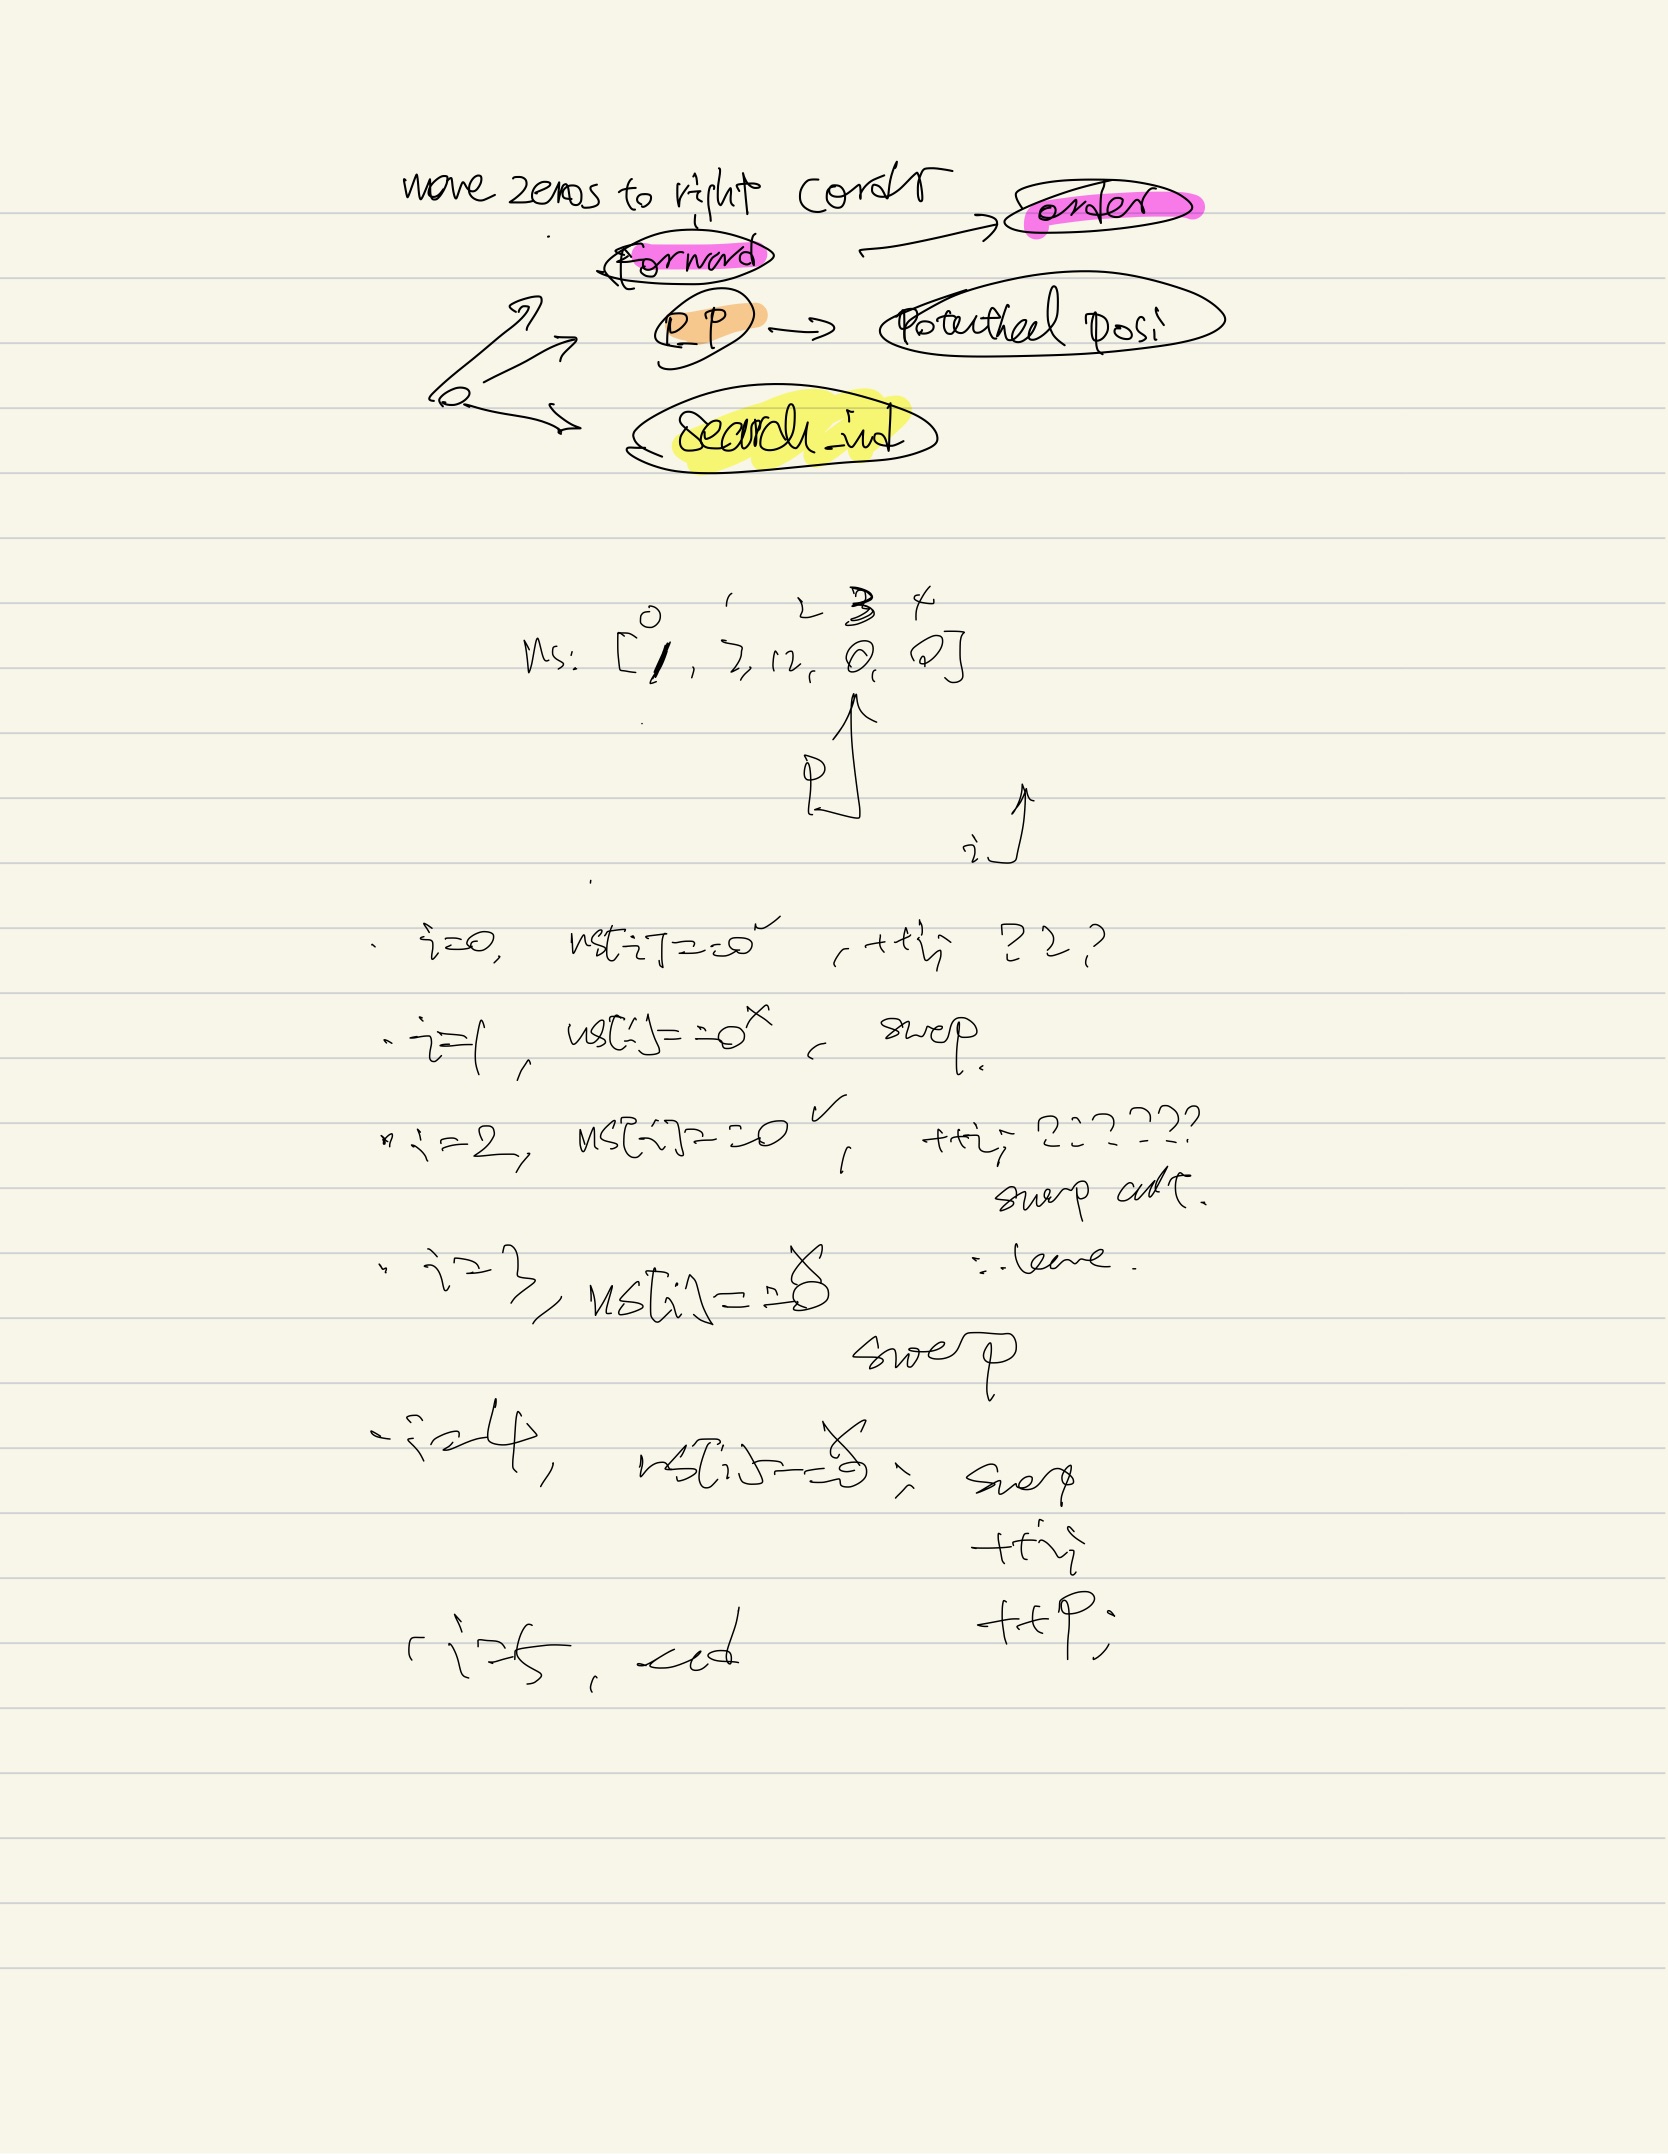 move zeros to right
order
forward
P_P → Potential posi
Search_ind
0 1 2 3 4
ns: [1, 3, 12, 0, 0]
p
i
· i=0, ns[i]==0 ✓, ++i; ???
· i=1, ns[i]==0 ×, swap.
· i=2, ns[i]==0 ✓, ++i; ??????
swap
∴ leave.
· i=3, ns[i]==0 ×
swap
· i=4, ns[i]==0 ×; swap
++i;
++P;
· i=5, end